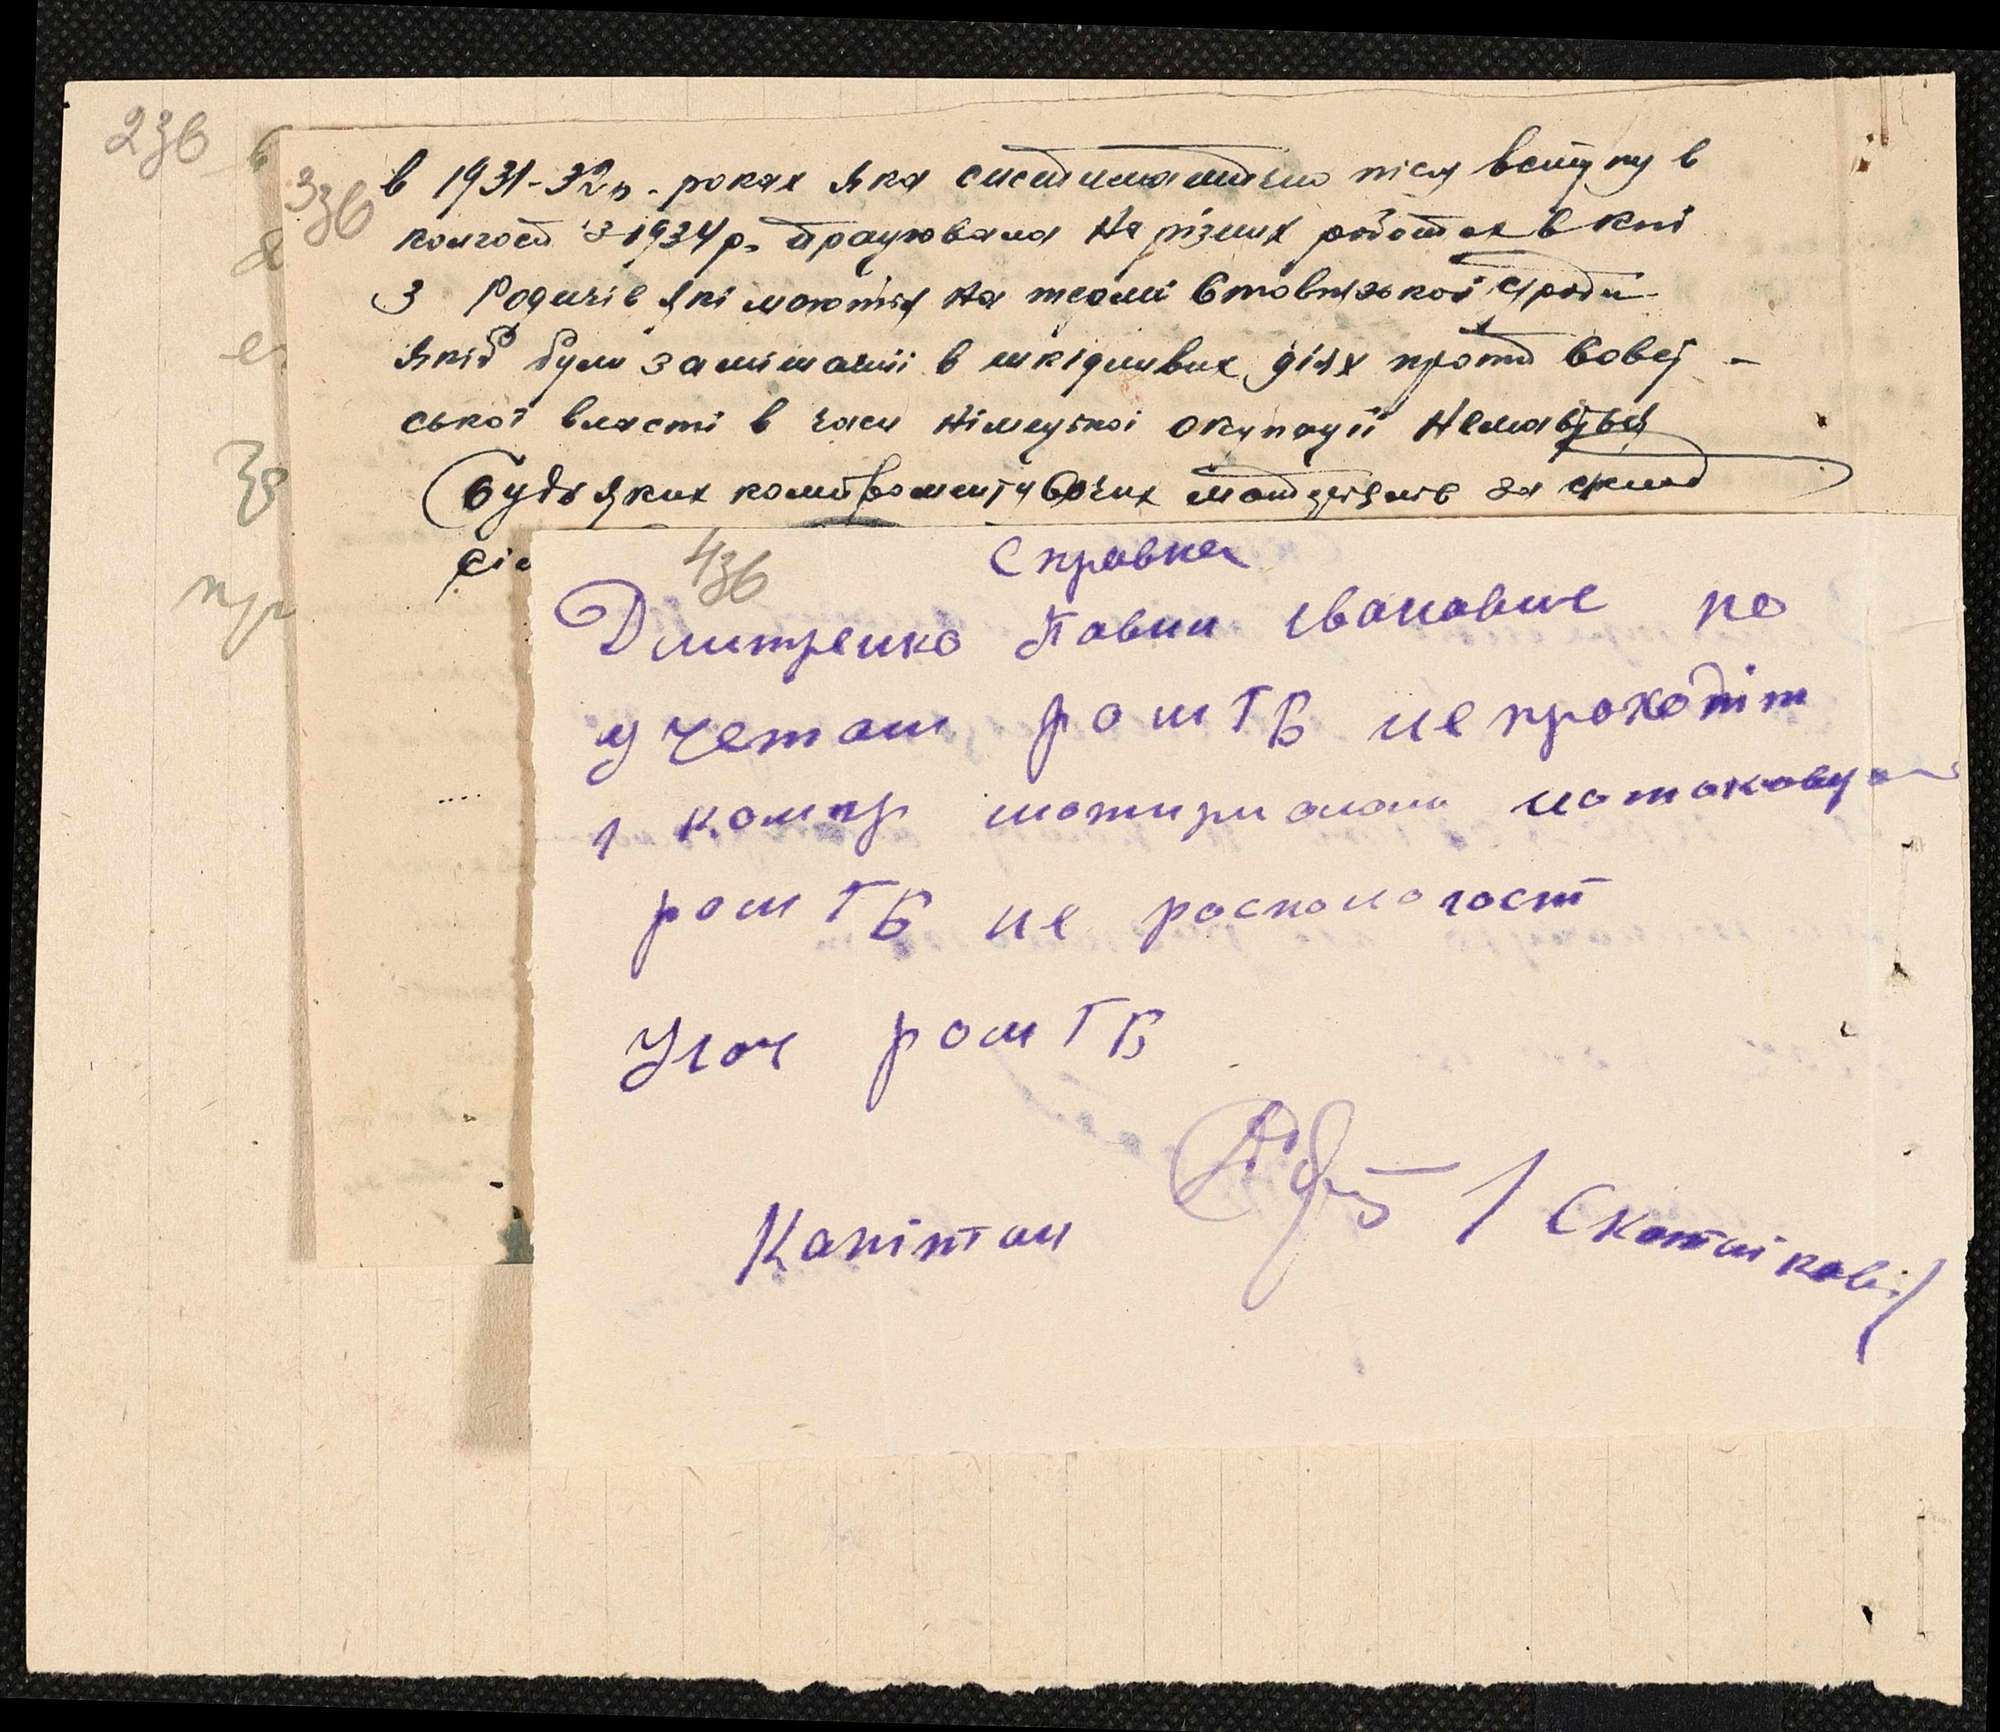 236
336
в 1931-32р. роках яка систиматично післу вступу в
колгосп з 1934р. працювала на різних роботах в кпі
З Родичів які маються на теомі Стависької уроди
якіб були замішанні в шкідливих діях проти Совєț -
ської власті в часи німецької окупації немається
будьяких компрометіуючих матеріялів за
сіл
436
Справка
Дмитренко Павли Івановичс по
учетам ромГБ не проходіт
і компр матириалами натакову
ромГБ не роспологаєт
Упол ромГБ
Капітан / Скотніков /
е
пр